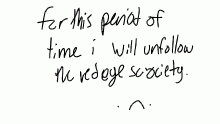 for this period of
time i will unfollow
society.